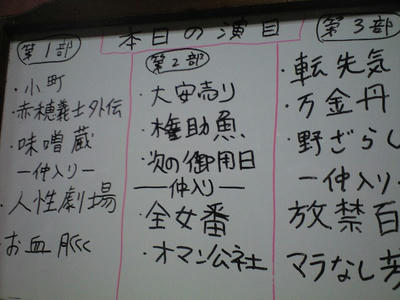 本日の演目
第1部
・小町
・赤穂義士外伝
・味噌蔵
―仲入り―
・人性劇場
・お血脈
第2部
・大安売り
・権助魚
・次の御用日
―仲入り―
・全女番
・オマン公社
第3部
・転失気
・万金丹
・野ざらし
―仲入り
放禁百
マラなし